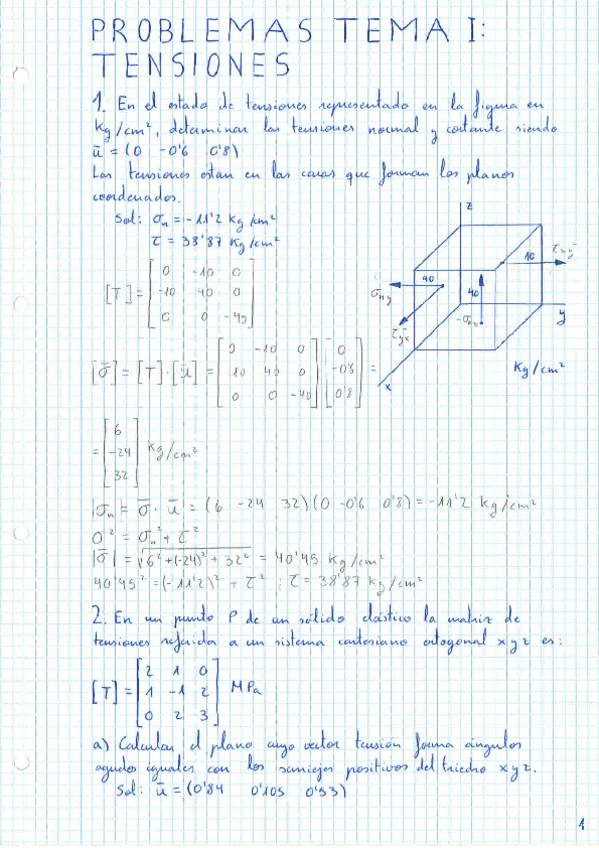 PROBLEMAS TEMA I:
TENSIONES
1. En el estado de tensiones representado en la figura en
Kg/cm², determinar las tensiones normal y cortante siendo
ū = (0 -0'6 0'8)
Las tensiones están en las caras que forman los planos
coordenados.
Sol: σn = -11'2 Kg/cm²
τ = 38'87 Kg/cm²
[T] = [ 0 -10 0
-10 40 0
0 0 -40 ]
z
40
10
τxy
σny
40
τyx
-σnz
y
x
Kg/cm²
[σ̄] = [T]·[ū] = [ 0 -10 0
-10 40 0
0 0 -40 ] [ 0
-0'6
0'8 ] =
= [ 6
-24
32 ] Kg/cm²
|σn| = σ̄ · ū = (6 -24 32)(0 -0'6 0'8) = -11'2 Kg/cm²
σ² = σn² + τ²
|σ̄| = √6²+(-24)²+32² = 40'45 Kg/cm²
40'45² = (-11'2)² + τ² ; τ = 38'87 Kg/cm²
2. En un punto P de un sólido elástico la matriz de
tensiones referida a un sistema cartesiano ortogonal xyz es:
[T] = [ 2 1 0
1 -1 2
0 2 3 ] MPa
a) Calcular el plano cuyo vector tensión forma ángulos
agudos iguales con los semiejes positivos del triedro xyz.
Sol: ū = (0'84 0'105 0'53)
1